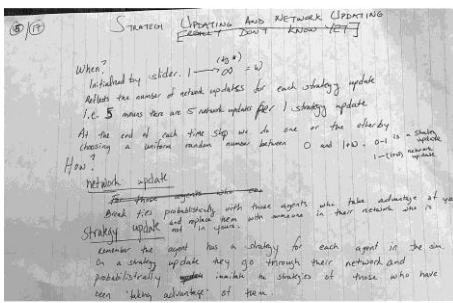 5/17
STRATEGY UPDATING AND NETWORK UPDATING
DON'T KNOW YET
When?
(big #)
Initialised by slider. 1 → ∞ = W
Reflects the number of network updates for each strategy update
i.e. 5 means there are 5 network updates per 1 strategy update
At the end of each time step we do one or the other by
choosing a uniform random number between 0 and 1+W. 0-1 is a strategy update
1-(1+W) network update.
How?
network update
For those agents who
Break ties probabilistically with those agents who take advantage of you
and replace them with someone in their network who is
not in yours.
Strategy update
remember the agent has a strategy for each agent in the sim.
On a strategy update they go through their network and
probabilistically imitate the strategies of those who have
been 'taking advantage' of them.